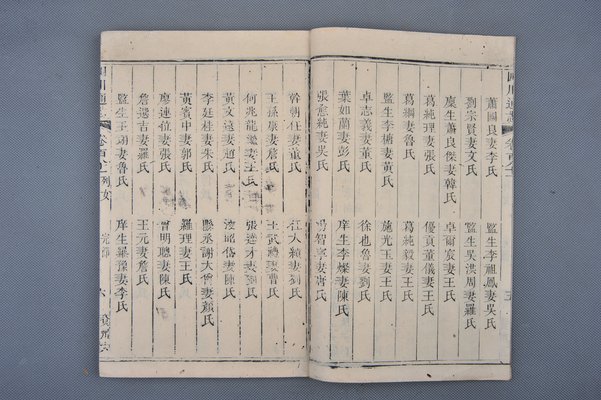 蕭國良妻李氏 監生李祖鳳妻吳氏
劉宗賢妻文氏 監生吳洪周妻羅氏
廩生蕭良傑妻韓氏 卓爾宸妻王氏
葛純理妻張氏 優貢董儀妻王氏
葛綱妻魯氏 葛純毅妻王氏
監生李樁妻黃氏 施光玉妻王氏
卓志義妻董氏 徐也魯妻劉氏
葉如蘭妻彭氏 庠生李燦妻陳氏
張愈純妻吳氏 智 妻 氏
幹朝任妻董氏 江大 妻劉氏
王孫康妻詹氏 王武 妻曹氏
何兆龍妻王氏 張 才妻 氏
黃文遠妻趙氏 昭 妻陳氏
李廷桂妻朱氏 縣丞謝大 妻顏氏
黃寶中妻郭氏 羅理妻王氏
廖連位妻張氏 曾明聰妻陳氏
詹選吉妻羅氏 王元妻詹氏
監生王翊妻魯氏 庠生羅 妻李氏
四川通志 卷百八十 列女 完節 六